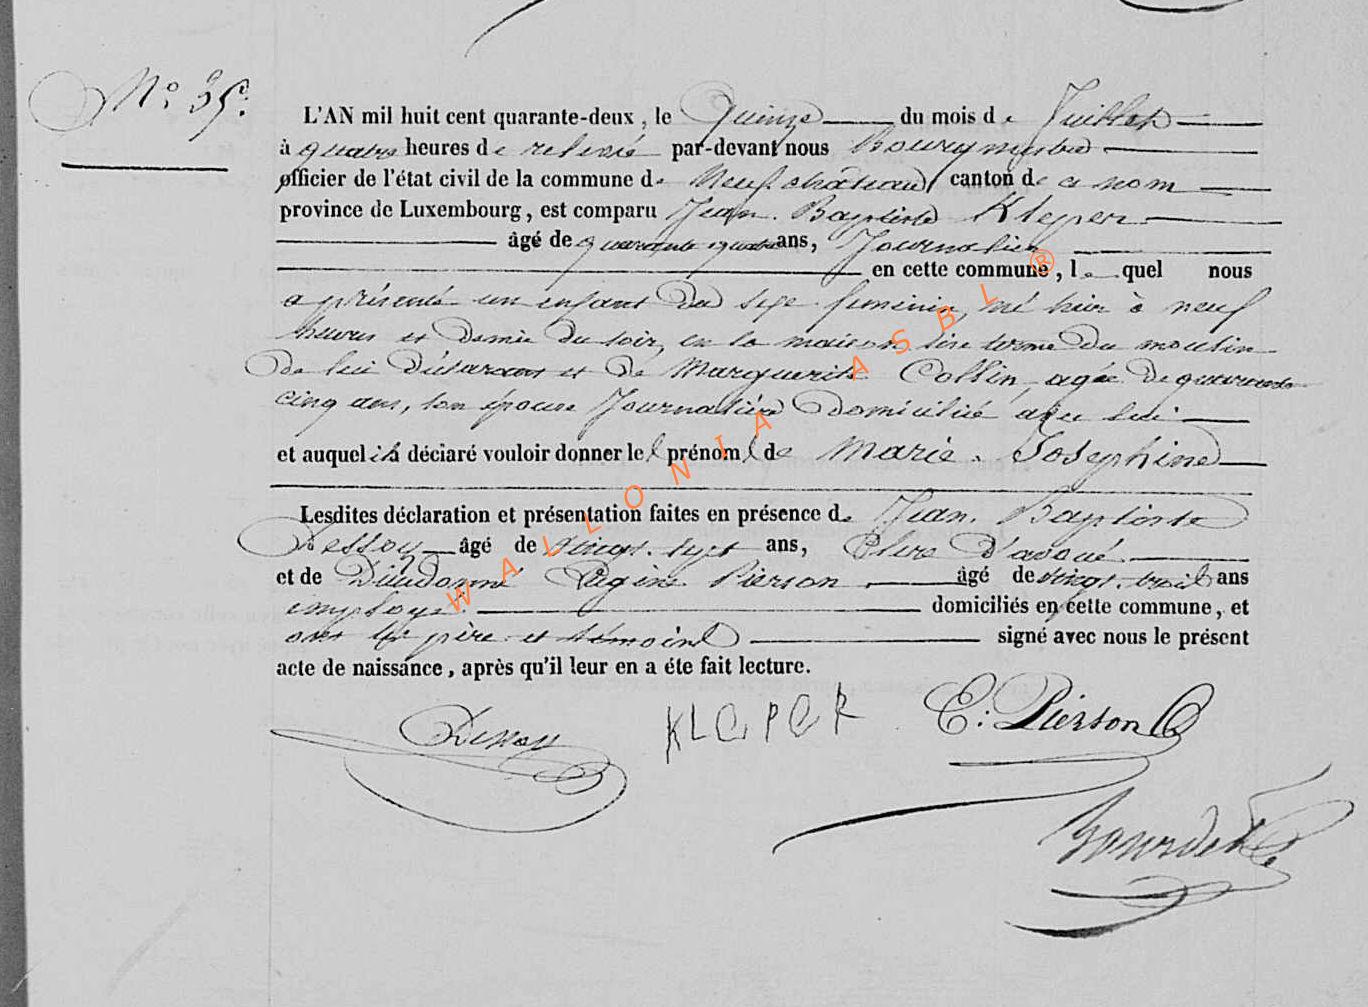 N° 35.
L'AN mil huit cent quarante-deux, le Quinze du mois de Juillet
à quatre heures de relevée par-devant nous
officier de l'état civil de la commune de Neufchâteau, canton de ce nom
province de Luxembourg, est comparu Jean-Baptiste Kleper
âgé de quarante quatre ans, Journalier
en cette commune, le quel nous
a présenté un enfant du sexe feminin, né hier à neuf
heures et demie du soir, en la maison du moulin
de lui déclarant et de Marguerite Collin, agée de quarante
cinq ans, son épouse Journalière domicilié avec lui
et auquel il a déclaré vouloir donner le prénom de Marie-Josephine
Lesdites déclaration et présentation faites en présence de Jean-Baptiste
Dessoy âgé de vingt-sept ans, d'avoué
et de Dieudonné Pierson âgé de vingt-trois ans
employé domiciliés en cette commune, et
ont les père et témoins signé avec nous le présent
acte de naissance, après qu'il leur en a éte fait lecture.
Dessoy KLEPER E: Pierson
WALLONIA ASBL ®